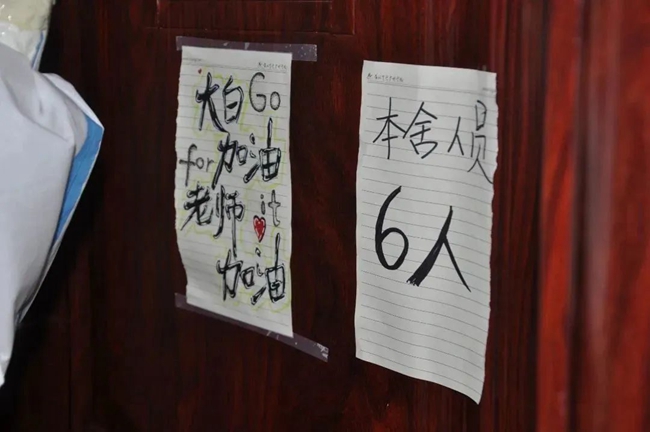 大白Go
for加油
老师it
加油
本舍人员
6人